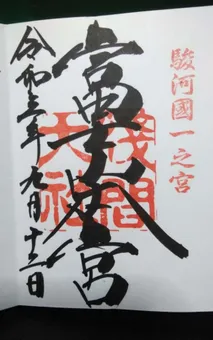 駿河國一之宮
富士本宮
浅間
大社
令和三年九月十二日